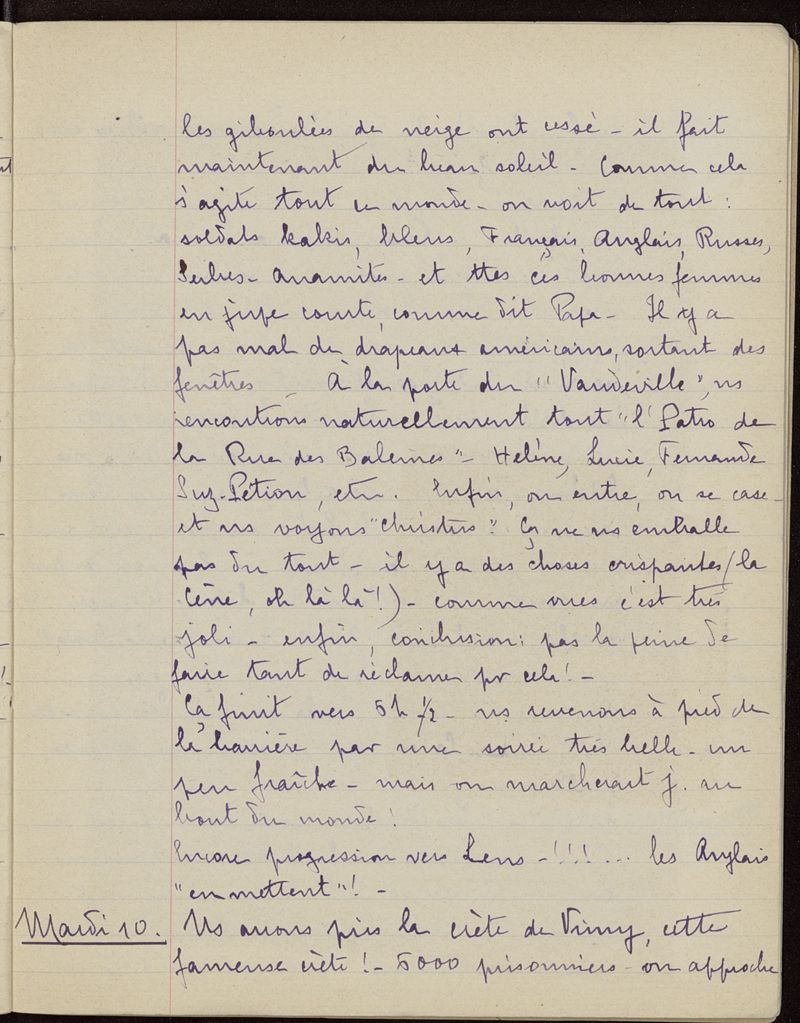 les giboulées de neige ont cessé – il fait
maintenant du beau soleil – Comme cela
s'agite tout ce monde – on voit de tout :
soldats kakis, bleus, Français, Anglais, Russes,
Serbes – Anamites – et ttes ces bonnes femmes
en jupe courte, comme dit Papa – Il y a
pas mal de drapeaux américains, sortant des
fenêtres – À la porte du "Vaudeville", ns
rencontrons naturellement tout "l'Patro de
la Rue des Baleines" – Hélène, Lucie, Fernande
Suz-Pétion, etc. Enfin, on entre, on se case –
et ns voyons "Christus". Ça ne ns emballe
pas du tout – il y a des choses crispantes (la
Cène, oh là là !) – comme vues c'est très
joli – enfin, conclusion : pas la peine de
faire tant de réclame pr cela ! –
Ça finit vers 5h ½ – ns revenons à pied de
la barrière par une soirée très belle – un
peu fraîche – mais on marcherait j. au
bout du monde !
Encore progression vers Lens – !!! ... les Anglais
"en mettent" ! –
Mardi 10. Ns avons pris la crête de Vimy, cette
fameuse crête ! – 5000 prisonniers – on approche